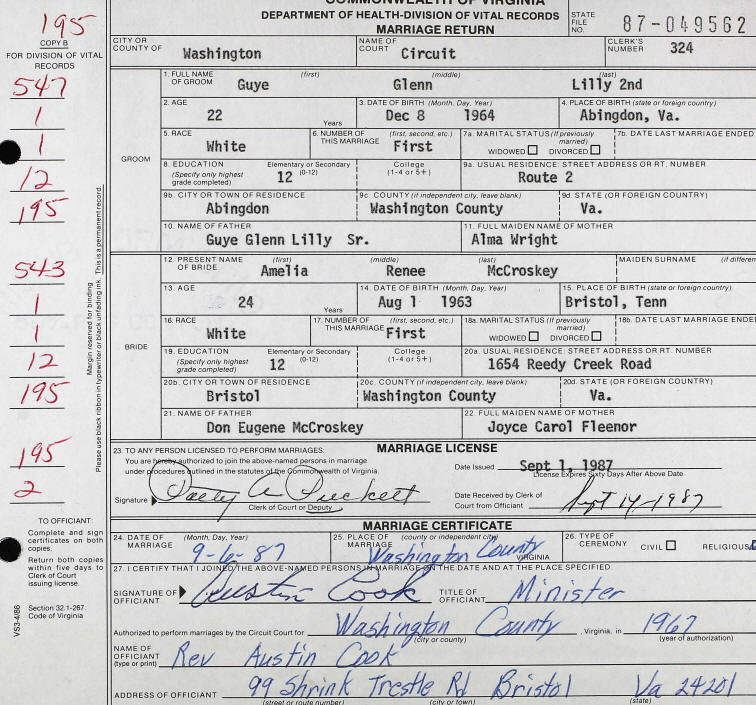 COMMONWEALTH OF VIRGINIA
DEPARTMENT OF HEALTH-DIVISION OF VITAL RECORDS
MARRIAGE RETURN
STATE FILE NO. 87-049562
195
COPY B
FOR DIVISION OF VITAL RECORDS
CITY OR COUNTY OF Washington NAME OF COURT Circuit CLERK'S NUMBER 324
547
1
1
12
195
543
1
1
12
195
195
2
GROOM
1. FULL NAME OF GROOM (first) Guye (middle) Glenn (last) Lilly 2nd
2. AGE 22 Years 3. DATE OF BIRTH (Month, Day, Year) Dec 8 1964 4. PLACE OF BIRTH (state or foreign country) Abingdon, Va.
5. RACE White 6. NUMBER OF THIS MARRIAGE (first, second, etc.) First 7a. MARITAL STATUS (If previously married) WIDOWED DIVORCED 7b. DATE LAST MARRIAGE ENDED
8. EDUCATION (Specify only highest grade completed) Elementary or Secondary (0-12) 12 College (1-4 or 5+) 9a. USUAL RESIDENCE: STREET ADDRESS OR RT. NUMBER Route 2
9b. CITY OR TOWN OF RESIDENCE Abingdon 9c. COUNTY (if independent city, leave blank) Washington County 9d. STATE (OR FOREIGN COUNTRY) Va.
10. NAME OF FATHER Guye Glenn Lilly Sr. 11. FULL MAIDEN NAME OF MOTHER Alma Wright
BRIDE
12. PRESENT NAME OF BRIDE (first) Amelia (middle) Renee (last) McCroskey MAIDEN SURNAME (if differen
13. AGE 24 Years 14. DATE OF BIRTH (Month, Day, Year) Aug 1 1963 15. PLACE OF BIRTH (state or foreign country) Bristol, Tenn
16. RACE White 17. NUMBER OF THIS MARRIAGE (first, second, etc.) First 18a. MARITAL STATUS (If previously married) WIDOWED DIVORCED 18b. DATE LAST MARRIAGE ENDED
19. EDUCATION (Specify only highest grade completed) Elementary or Secondary (0-12) 12 College (1-4 or 5+) 20a. USUAL RESIDENCE: STREET ADDRESS OR RT. NUMBER 1654 Reedy Creek Road
20b. CITY OR TOWN OF RESIDENCE Bristol 20c. COUNTY (if independent city, leave blank) Washington County 20d. STATE (OR FOREIGN COUNTRY) Va.
21. NAME OF FATHER Don Eugene McCroskey 22. FULL MAIDEN NAME OF MOTHER Joyce Carol Fleenor
Margin reserved for binding
Please use black ribbon in typewriter or black unfading ink. This is a permanent record.
MARRIAGE LICENSE
23. TO ANY PERSON LICENSED TO PERFORM MARRIAGES:
You are hereby authorized to join the above-named persons in marriage
under procedures outlined in the statutes of the Commonwealth of Virginia.
Date Issued Sept 1, 1987
License Expires Sixty Days After Above Date
Signature A Puckett
Clerk of Court or Deputy
Date Received by Clerk of Court from Officiant Sept 14-1987
TO OFFICIANT:
Complete and sign certificates on both copies.
Return both copies within five days to Clerk of Court issuing license.
Section 32.1-267. Code of Virginia
VS3-4/86
MARRIAGE CERTIFICATE
24. DATE OF MARRIAGE (Month, Day, Year) 9-6-87 25. PLACE OF MARRIAGE (county or independent city) Washington County VIRGINIA 26. TYPE OF CEREMONY CIVIL RELIGIOUS
27. I CERTIFY THAT I JOINED THE ABOVE-NAMED PERSONS IN MARRIAGE ON THE DATE AND AT THE PLACE SPECIFIED.
SIGNATURE OF OFFICIANT Austin Cook TITLE OF OFFICIANT Minister
Authorized to perform marriages by the Circuit Court for Washington County, Virginia, in 1967
(city or county) (year of authorization)
NAME OF OFFICIANT (type or print) Rev Austin Cook
ADDRESS OF OFFICIANT 99 Shrink Trestle Rd Bristol Va 24201
(street or route number) (city or town) (state)